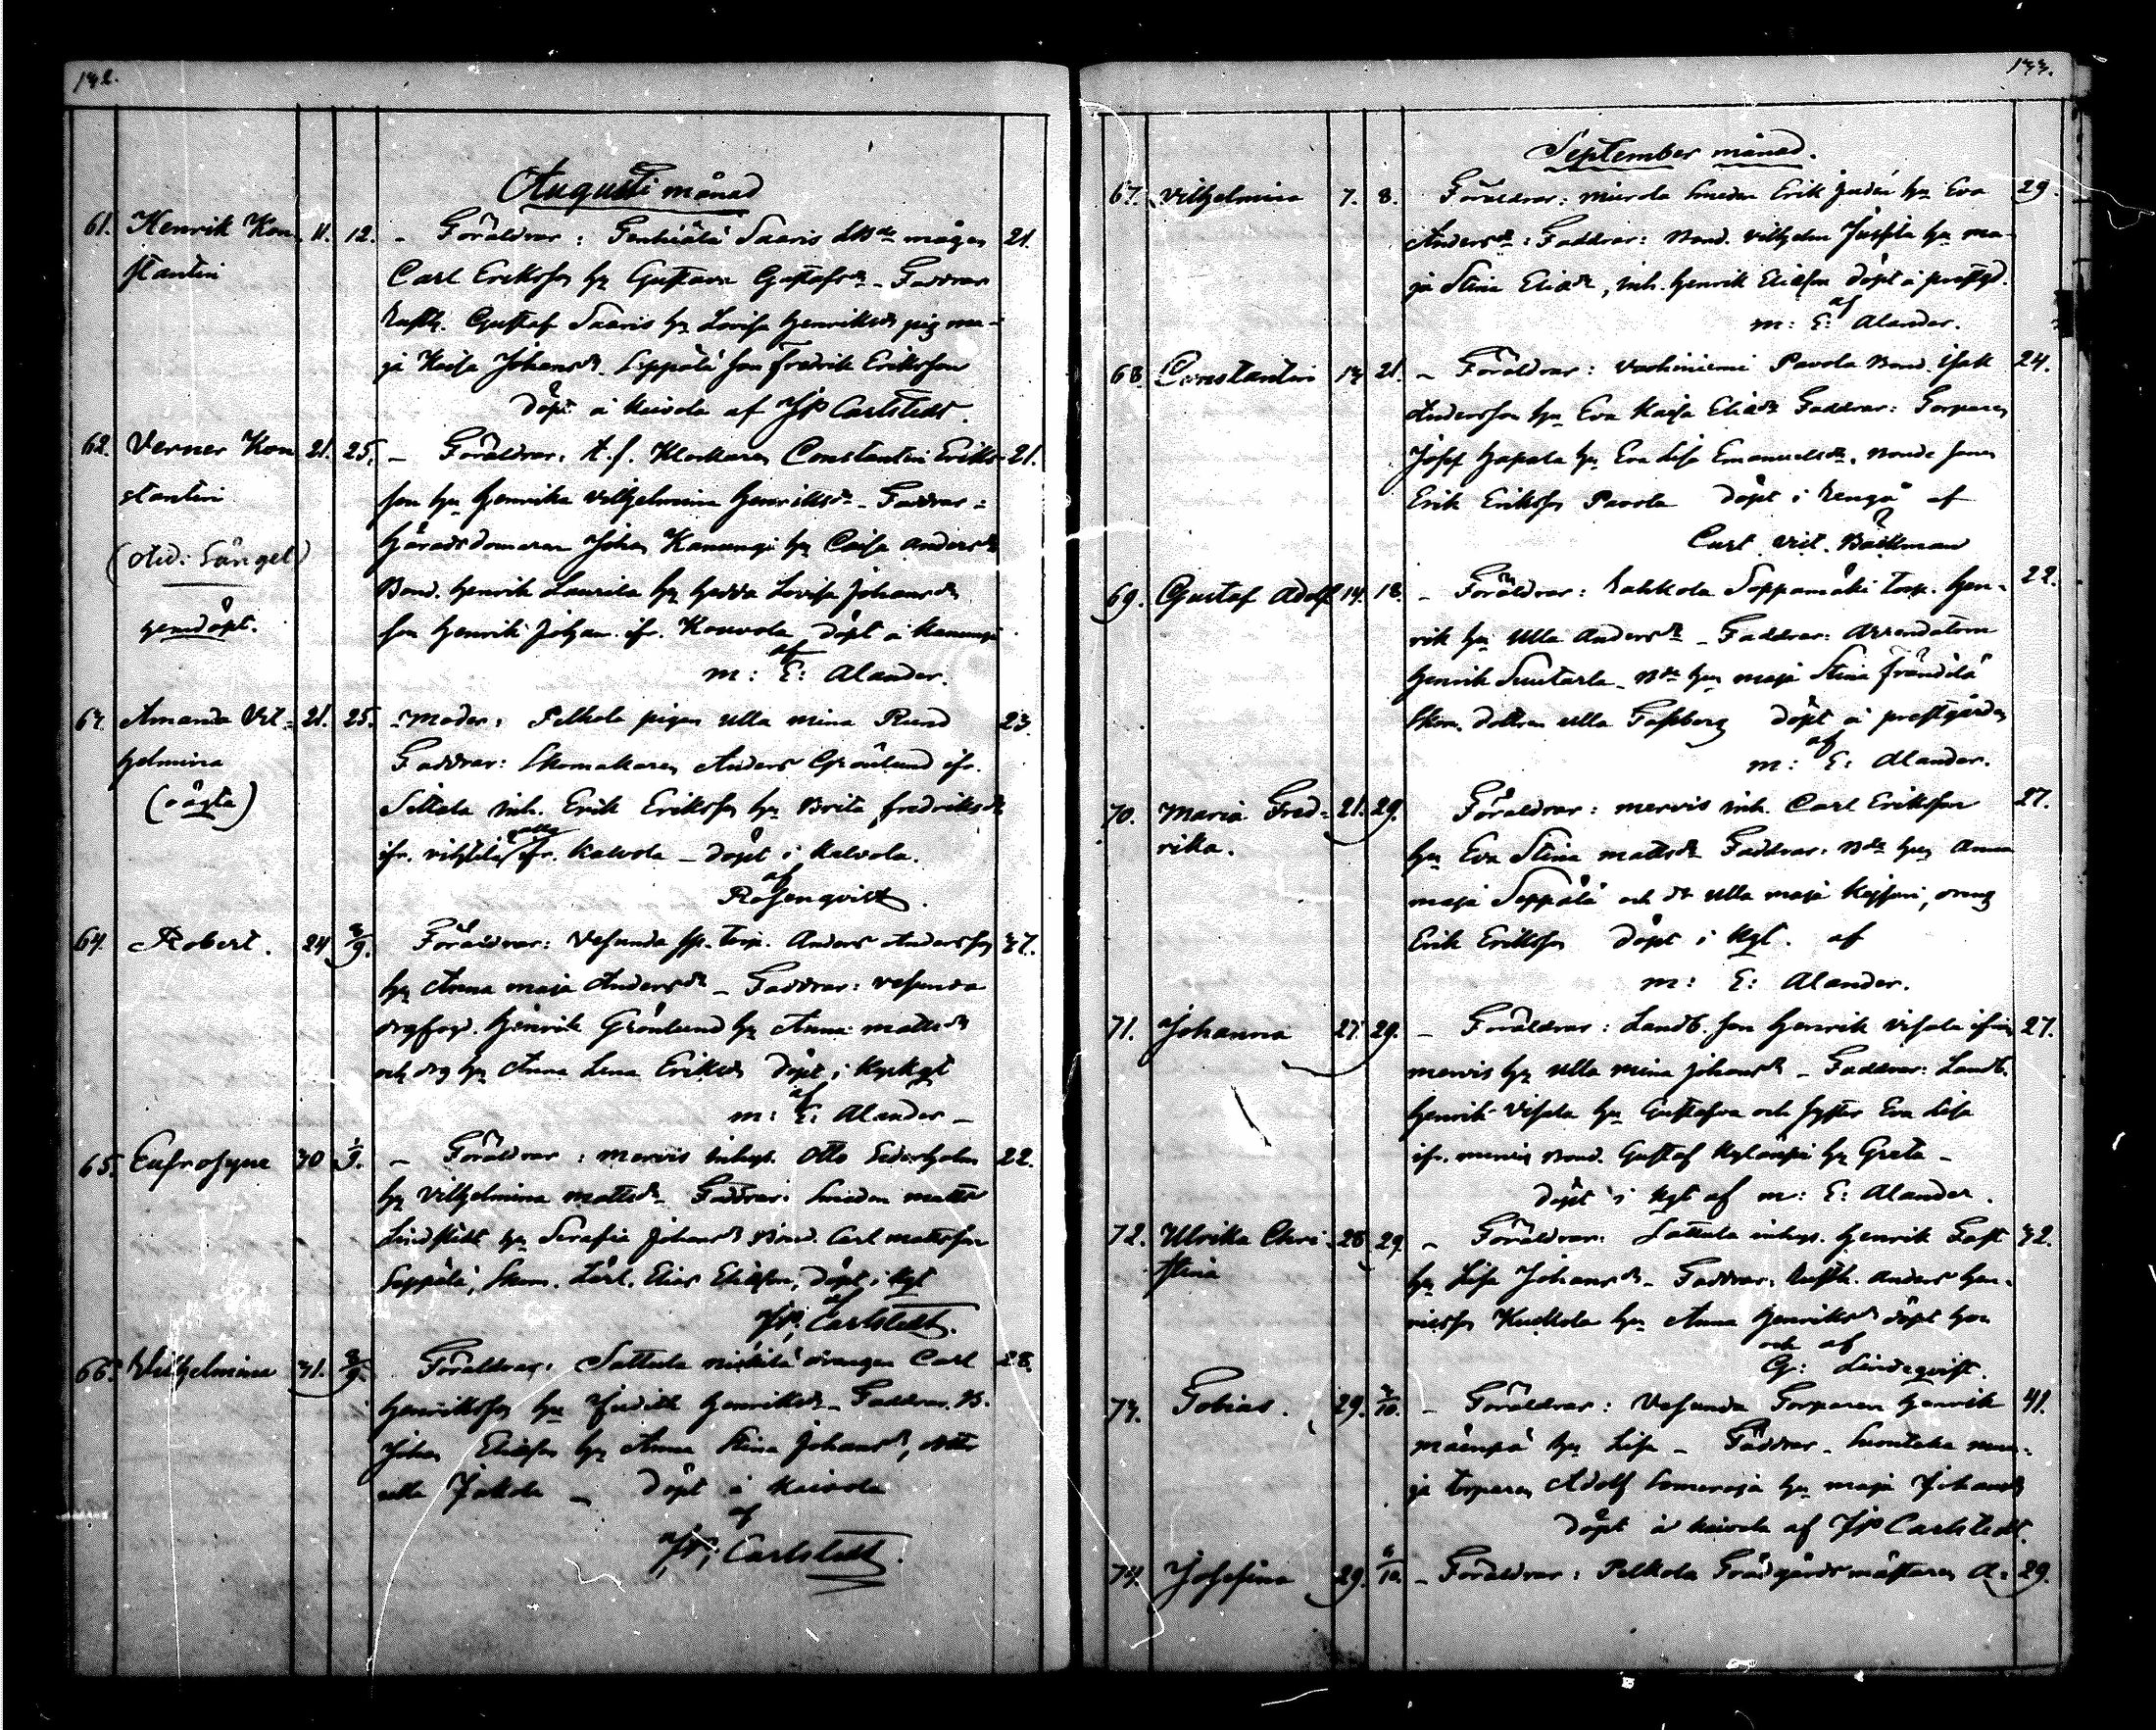 132.
Augusti månad
61. Henrik Kon- 11. 12. - Föräldrar: Saaris mågen 21.
stantin Carl Eriksson hu Gustava Gustafsdr - Faddrar
Rusth. Gustaf Saaris hu Lovisa Henriksdr pig. ma-
ja Kaisa Johansdr. Seppälä son Fredrik Eriksson
döpt å Keivola af JP Carlstedt.
62. Verner Kon 21. 25. - Föräldrar: t.f. Klockaren Constantin Eriks- 21.
stantin son hu Henrika Vilhelmina Henriksdr - Faddrar:
(Sångel) Häradsdomaren Johan Kanungi hu Caisa Andersdr
Bond. Henrik Laurila hu Hedda Lovisa Johansdr
gemdöpt. son Henrik Johan. ifr. Kouvola döpt å Kanungi
af
m: E: Alander.
63. Amanda Vil- 21. 25. - Moder: Pelkola pigan Ulla Mina Rund 23.
helmina Faddrar: Skomakaren Anders Grönlund ifr.
(oägta) Sittala inh. Erik Eriksson hu Brita Fredriksdr
ifr. ifr. Kalvola - döpt i Kalvola.
af
Rosenqvist.
64. Robert. 24 3/9. Föräldrar: Vesunda Torp. Anders Andersson 37.
hu Anna Maja Andersdr - Faddrar: Vesunda
Henrik Grönlund hu Anna Mattsdr
och drg hu Anna Lena Eriksdr döpt i Kyrkgt
af
m: E: Alander -
65. Eufrosyne 30 1/9. - Föräldrar: Mervis inhys. Otto Sederholm 22.
hu Vilhelmina Mattsdr - Faddrar: Smeden Matts
Lindstedt hu Serafia Johansdr Bond. Carl Mattsson
Seppälä, Skom. Lärl. Elias Eliasson, döpt i Kgt
af
JP; Carlstedt.
66. Vilhelmina 31. 8/9. Föräldrar: Sattula Niskilä drängen Carl 28.
Henriksson hu Judith Henriksdr - Faddrar. B.
Johan Eliasson hu Anna Stina Johansdr,
Ulla Jakola - döpt å Keivola
af
JP; Carlstedt.
133.
September månad.
67. Vilhelmina 7. 8. Föräldrar: Mierola Smeden Erik Judén hu Eva 29.
Andersdr: Faddrar: Bond. Vilhelm Jussila hu Ma-
ja Stina Eliadr, inh. Henrik Eliasson döpt å prestgd.
af
m: E: Alander.
68. Constantin 13 21. - Föräldrar: Vachiniemi Pavola Bond. Isak 24.
Andersson hu Eva Kaisa Eliadr Faddrar: Torparen
Josef Hapala hu Eva Lisa Emanuelsdr. Bonde sonen
Erik Eriksson Pavola döpt i Rengå af
Curt Vict. Bäckman
69. Gustaf Adolf 14. 18. - Föräldrar: Soppamäki torp. Hen- 22.
rik hu Ulla Andersdr - Faddrar: Arrendatorn
Henrik Suutarla - Bde hu Maja Stina Frändilä
Skom. dottren Ulla Forsberg döpt å prestgården
af
m: E: Alander.
70. Maria Fred- 21. 29. Föräldrar: Mervis inh. Carl Eriksson 27.
rika. hu Eva Stina Mattsdr Faddrar: Bde hu Anna
Maja Seppälä och dr Ulla Maja, dreng
Erik Eriksson döpt i Kgt. af
m: E: Alander.
71. Johanna 27 29. - Föräldrar: Landb. son Henrik Visala ifrån 27.
Mervis hu Ulla Mina Johansdr - Faddrar: Landb.
Henrik Visala hu Gustafva och syster Eva Lisa
ifr. Mervis Bond. Gustaf Kylänpä hu Greta -
döpt i Kgt af m: E: Alander.
72. Ulrika Chri- 28 29. - Föräldrar: Sattula inhys. Henrik Fast 32.
stina hu Lisa Johansdr - Faddrar: Rusth. Anders Hen-
ricsson Kuckola hu Anna Henriksdr döpt hem
och af
G: Lindeqvist.
73. Tobias. 29. 3/10. - Föräldrar: Vesunda Torparen Henrik 41.
Mäenpä hu Lisa - Faddrar - Suontaka
ja torparen Adolf Someroja hu Maja Johansdr
döpt å Keivola af JP Carlstedt
74. Josefina 29. 6/10. - Föräldrar: Pelkola Trädgårdsmästaren A: 29.